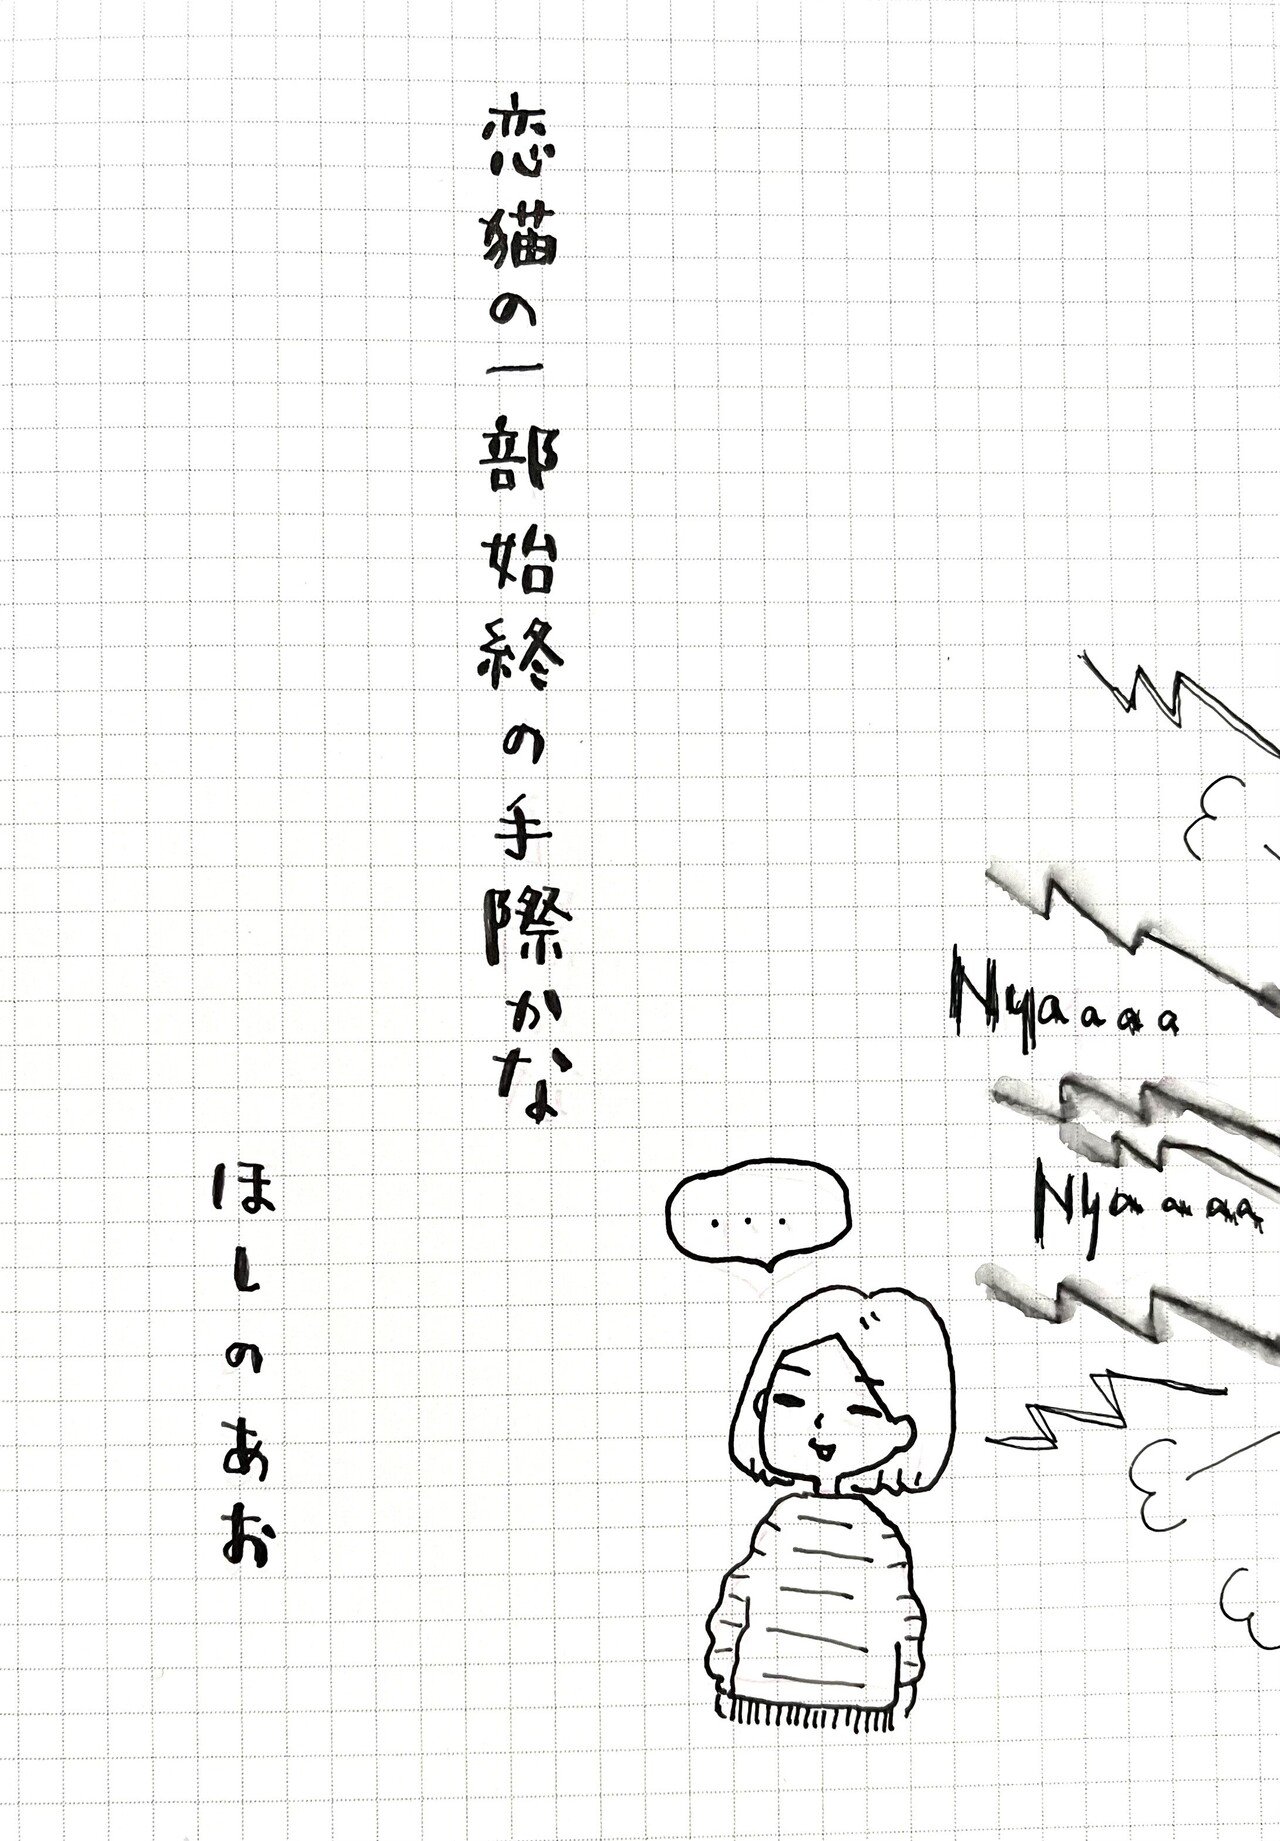 恋猫の一部始終の手際かな
ほしのあお
Nyaaaa
Nyaaaaa
...